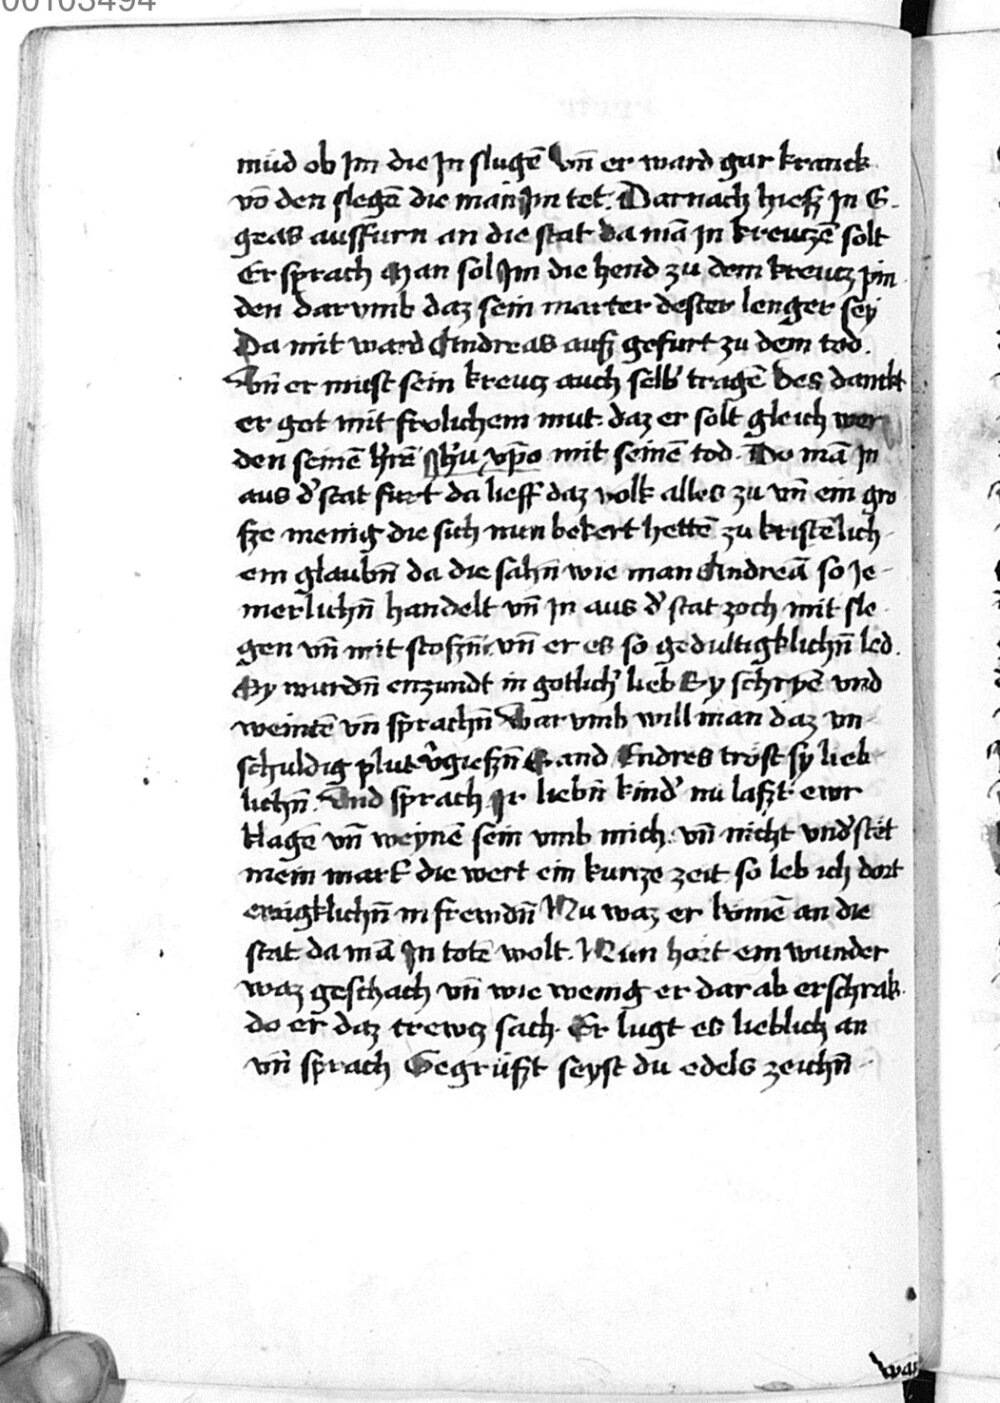 00103494
müd ob Im die In slugē Vn̄ er ward gar kranck
vō den slegē die man Im tet. Darnach hiesz In E-
geas ausfurn an die stat da mā In kreutzē solt
Er sprach Man sol Im die hend zu dem kreutz pin
den dar vmb daz sein marter dester lenger sey
Da mit ward Andreas ausz gefurt zu dem tod.
Vn̄ er must sein kreutz auch selb' tragē des danckt
er got mit frolichem mut. daz er solt gleich wer
den seinē h'rn̄ Jh'u xp̄o mit seinē tod. Do mā In
aus d' stat furt da lieff daz volk alles zu vn̄ ein gro
sze menig die sich nun bekert hettē zu kristēlich-
em glaubn̄ da die sahn̄ wie man Andreā so Je-
merlichn̄ handelt vn̄ In aus d' stat zoch mit sle-
gen vn̄ mit stoszn̄. vn̄ er es so gedultigklichn̄ led.
Sy wurdn̄ enzundt in gotlich' lieb Sy schryē vnd
weintē vn̄ sprachn̄ War vmb will man daz vn-
schuldig plut v'gieszn̄ Sand Endres trost sy lieb-
lichn̄. Und sprach Ir liebn̄ kind' nu laszt ewr
klagē vn̄ weynē sein vmb mich. vn̄ nicht vnd'stēt
mein mart' die wert ein kurcze zeit so leb ich dort
ewigklichn̄ in frewdn̄ Nu waz er komē an die
stat da mā In totē wolt. Nun hort ein wunder
waz geschach vn̄ wie wenig er dar ab erschrak.
do er daz crewtz sach. Er lugt es lieblich an
vn̄ sprach Gegrüszt seyst du edels zeichn̄